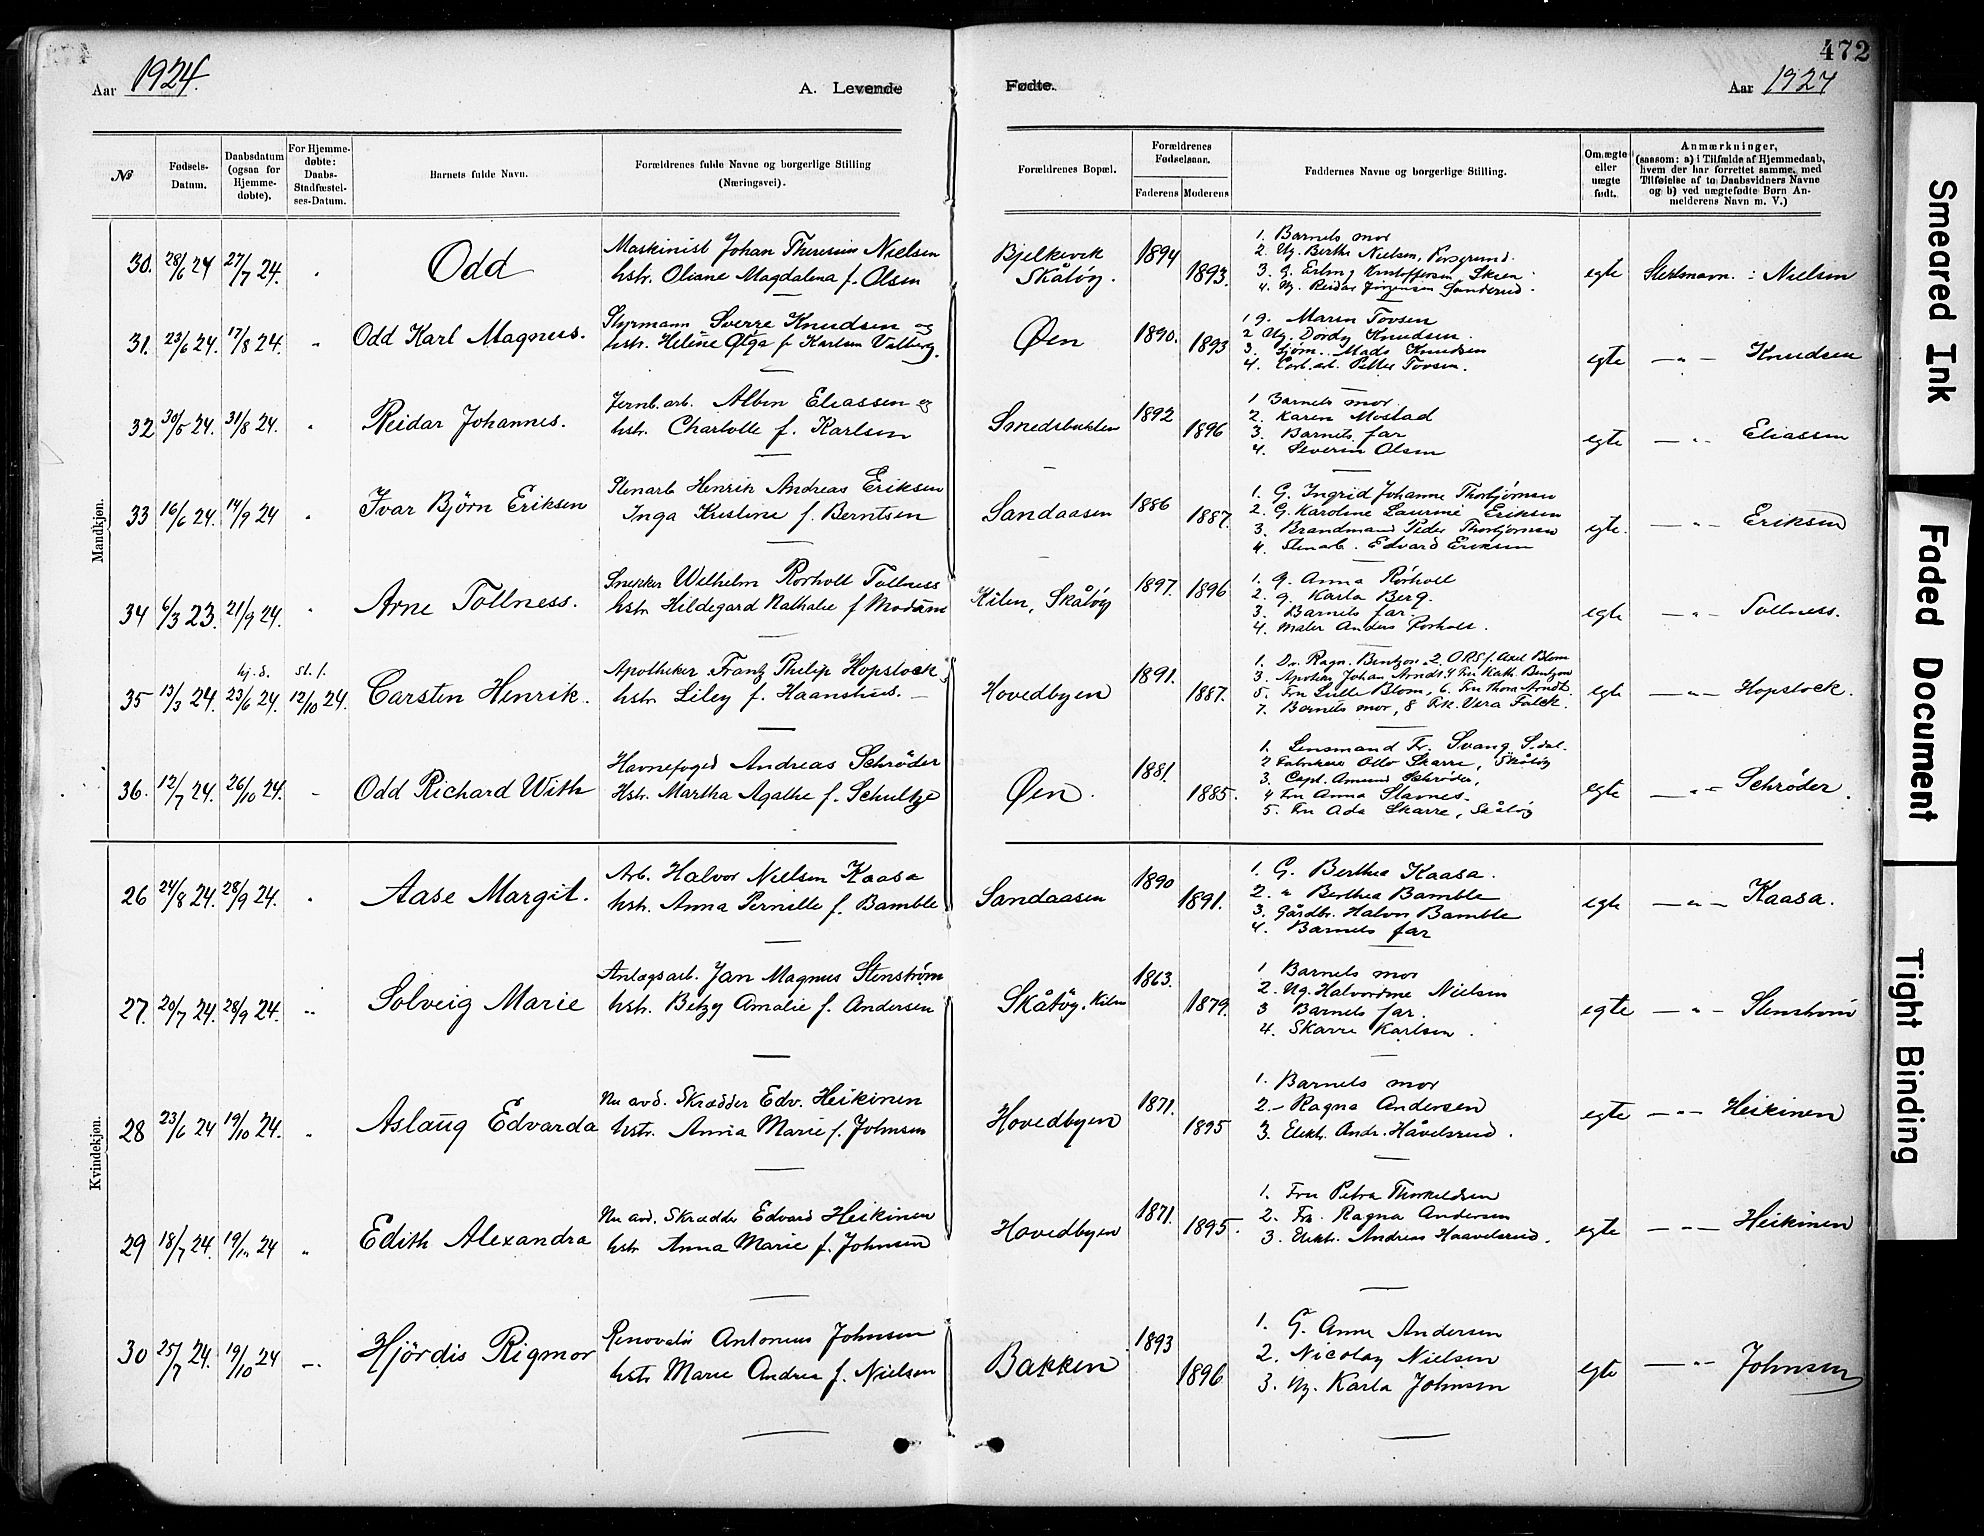 472
Aar 1924.
A. Levende
Fødte.
Aar 1924
№
Fødsels-Datum.
Daabsdatum (ogsaa for Hjemme-døbte).
For Hjemme-døbte: Daabs-Stadfæstel-ses-Datum.
Barnets fulde Navn.
Forældrenes fulde Navne og borgerlige Stilling
(Næringsvei).
Forældrenes Bopæl.
Forældrenes Fødselsaar.
Faderens Moderens
Faddernes Navne og borgerlige Stilling.
Om ægte eller uægte født.
Anmærkninger,
(saasom: a) i Tilfælde af Hjemmedaab,
hvem der har forrettet samme, med
Tilføielse af to Daabsvidners Navne
og b) ved uægtefødte Børn An-
melderens Navn m. V.)
Mandkjøn.
30. 28/6 24 27/7 24. „ Odd
Maskinist Johan Theresius Nielsen
hstr. Oliane Magdalena f. Olsen
Bjelkevik
Skåtöy.
1894
1893.
1. Barnets mor
2. Ug. Berthe Nielsen, Porsgrund.
3. G. Erling Kristoffersen Skien
4. Ug. Reidar Jörgensen Sanderud.
egte
Slektsnavn: Nielsen
31. 23/6 24. 17/8 24. „ Odd Karl Magnus.
Styrmann Sverre Knudsen og
hstr. Heline Olga f. Karlsen Valberg.
Øen
1890.
1893
1 g. Maren Tovsen
2 Ug. Dordy Knudsen.
3. Sjøm. Mads Knudsen
4. arb. Petter Tovsen.
egte
— „ — Knudsen
32 30/5 24. 31/8 24. „ Reidar Johannes.
Jernb. arb. Albin Eliassen og
hstr. Charlotte f. Karlsen
Smedsbukten
1892
1896
1 Barnets mor.
2. Karen Mostad
3. Barnets far
4. Severin Olsen
egte
— „ — Eliassen
33 16/6 24. 14/9 24 „ Ivar Björn Eriksen
Stenarb Henrik Andreas Eriksen
Inga Kristine f. Berntsen
Sandaasen
1886
1887.
1. G. Ingrid Johanne Thorbjörnsen
2. G. Karoline Laurine Eriksen
3. Brandmand Peder Thorbjörnsen
4. Stenarb. Edvard Eriksen
egte.
— „ — Eriksen
34 6/3 23. 21/9 24. „ Arne Tollness.
Snekker Wilhelm Rorholt Tollness
hstr. Hildegard Nathalie f Modum
Kilen, Skåtöy
1897. 1896
1. g. Anna Rörholt
2. g. Karla Berg.
3. Barnets far.
4. Maler Anders Rorholt.
egte
— „ — Tollness.
hj. d. st. f.
35 13/3 24. 23/6 24. 12/10 24. Carsten Henrik.
Apotheker Frantz Philip Hopstock
hstr. Liley f. Haanshus. —
Hovedbyen
1891.
1887.
1. Dr. Ragn. Bentzon. 2. O.R.S.f. Axel Blom
3. Apothek Johan Arndt 4 Fru Kath. Bentzon
5. Fru Lulle Blom, 6. Fru Thom Arndt.
7. Barnets mor, 8 Frk. Vera Falck.
egte
— „ — Hopstock.
36. 12/7 24. 26/10 24. – Odd Richard With
Havnefoged Andreas Schröder
Hstr. Martha Agathe f. Schultze
Øen.
1881.
1885.
1. Lensmand Fr. Svang S.dal.
2 Fabrikeier Otto Skarre, Skåtöy
3. Capt. Amund Schröder,
4 Fru Anna Stavnes.
5. Fru Ada Skarre, Skåtöy
egte
— „ — Schrøder.
Kvindekjøn.
26 24/8 24. 28/9 24. „ Aase Margit.
Arb. Halvor Nielsen Kaasa
hstr. Anna Pernille f. Bamble
Sandaasen
1890
1891.
1. G. Berthea Kaasa.
2. „ Berthea Bamble
3. Gårdbr. Halvor Bamble
4. Barnets far
egte
— „ — Kaasa.
27. 20/7 24. 28/9 24. „ Solveig Marie
Anlægsarb. Jan Magnus Stenström
hstr. Betzy Amalie f. Andersen
Skåtöy. Kilen
1863.
1879.
1 Barnets mor
2. Ug. Halvordine Nielsen
3 Barnets far.
4. Skarre Karlsen.
egte
— „ — Stenström
28 23/6 24 19/10 24. „ Aslaug Edvarda
Nu avd. Skrædder Edv. Heikinen
hstr. Anna Marie f. Johnsen
Hovedbyen
1871.
1895
1. Barnets mor
2. – Ragna Andersen
3. Elekt. Andr. Håvelsrud.
egte
— „ — Heikinen
29 18/7 24. 19/10 24 „ Edith Alexandra
Nu avd. Skrædder Edvard Heikinen
hstr. Anna Marie f. Johnsen
Hovedbyen
1871.
1895.
1. Fru Petra Thorkildsen
2. Fru. Ragna Andersen
3. Elektr. Andreas Haavelsrud.
egte
— „ — Heikinen
30 25/7 24. 19/10 24 –„– Hjördis Rigmor
Renovatör Antonius Johnsen
hstr Marie Andrea f. Nielsen
Bakken
1893
1896
1. G. Anne Andersen
2. Nicolay Nielsen
3. Ug. Karla Johnsen
egte
— „ — Johnsen
Smeared Ink
Faded Document
Tight Binding